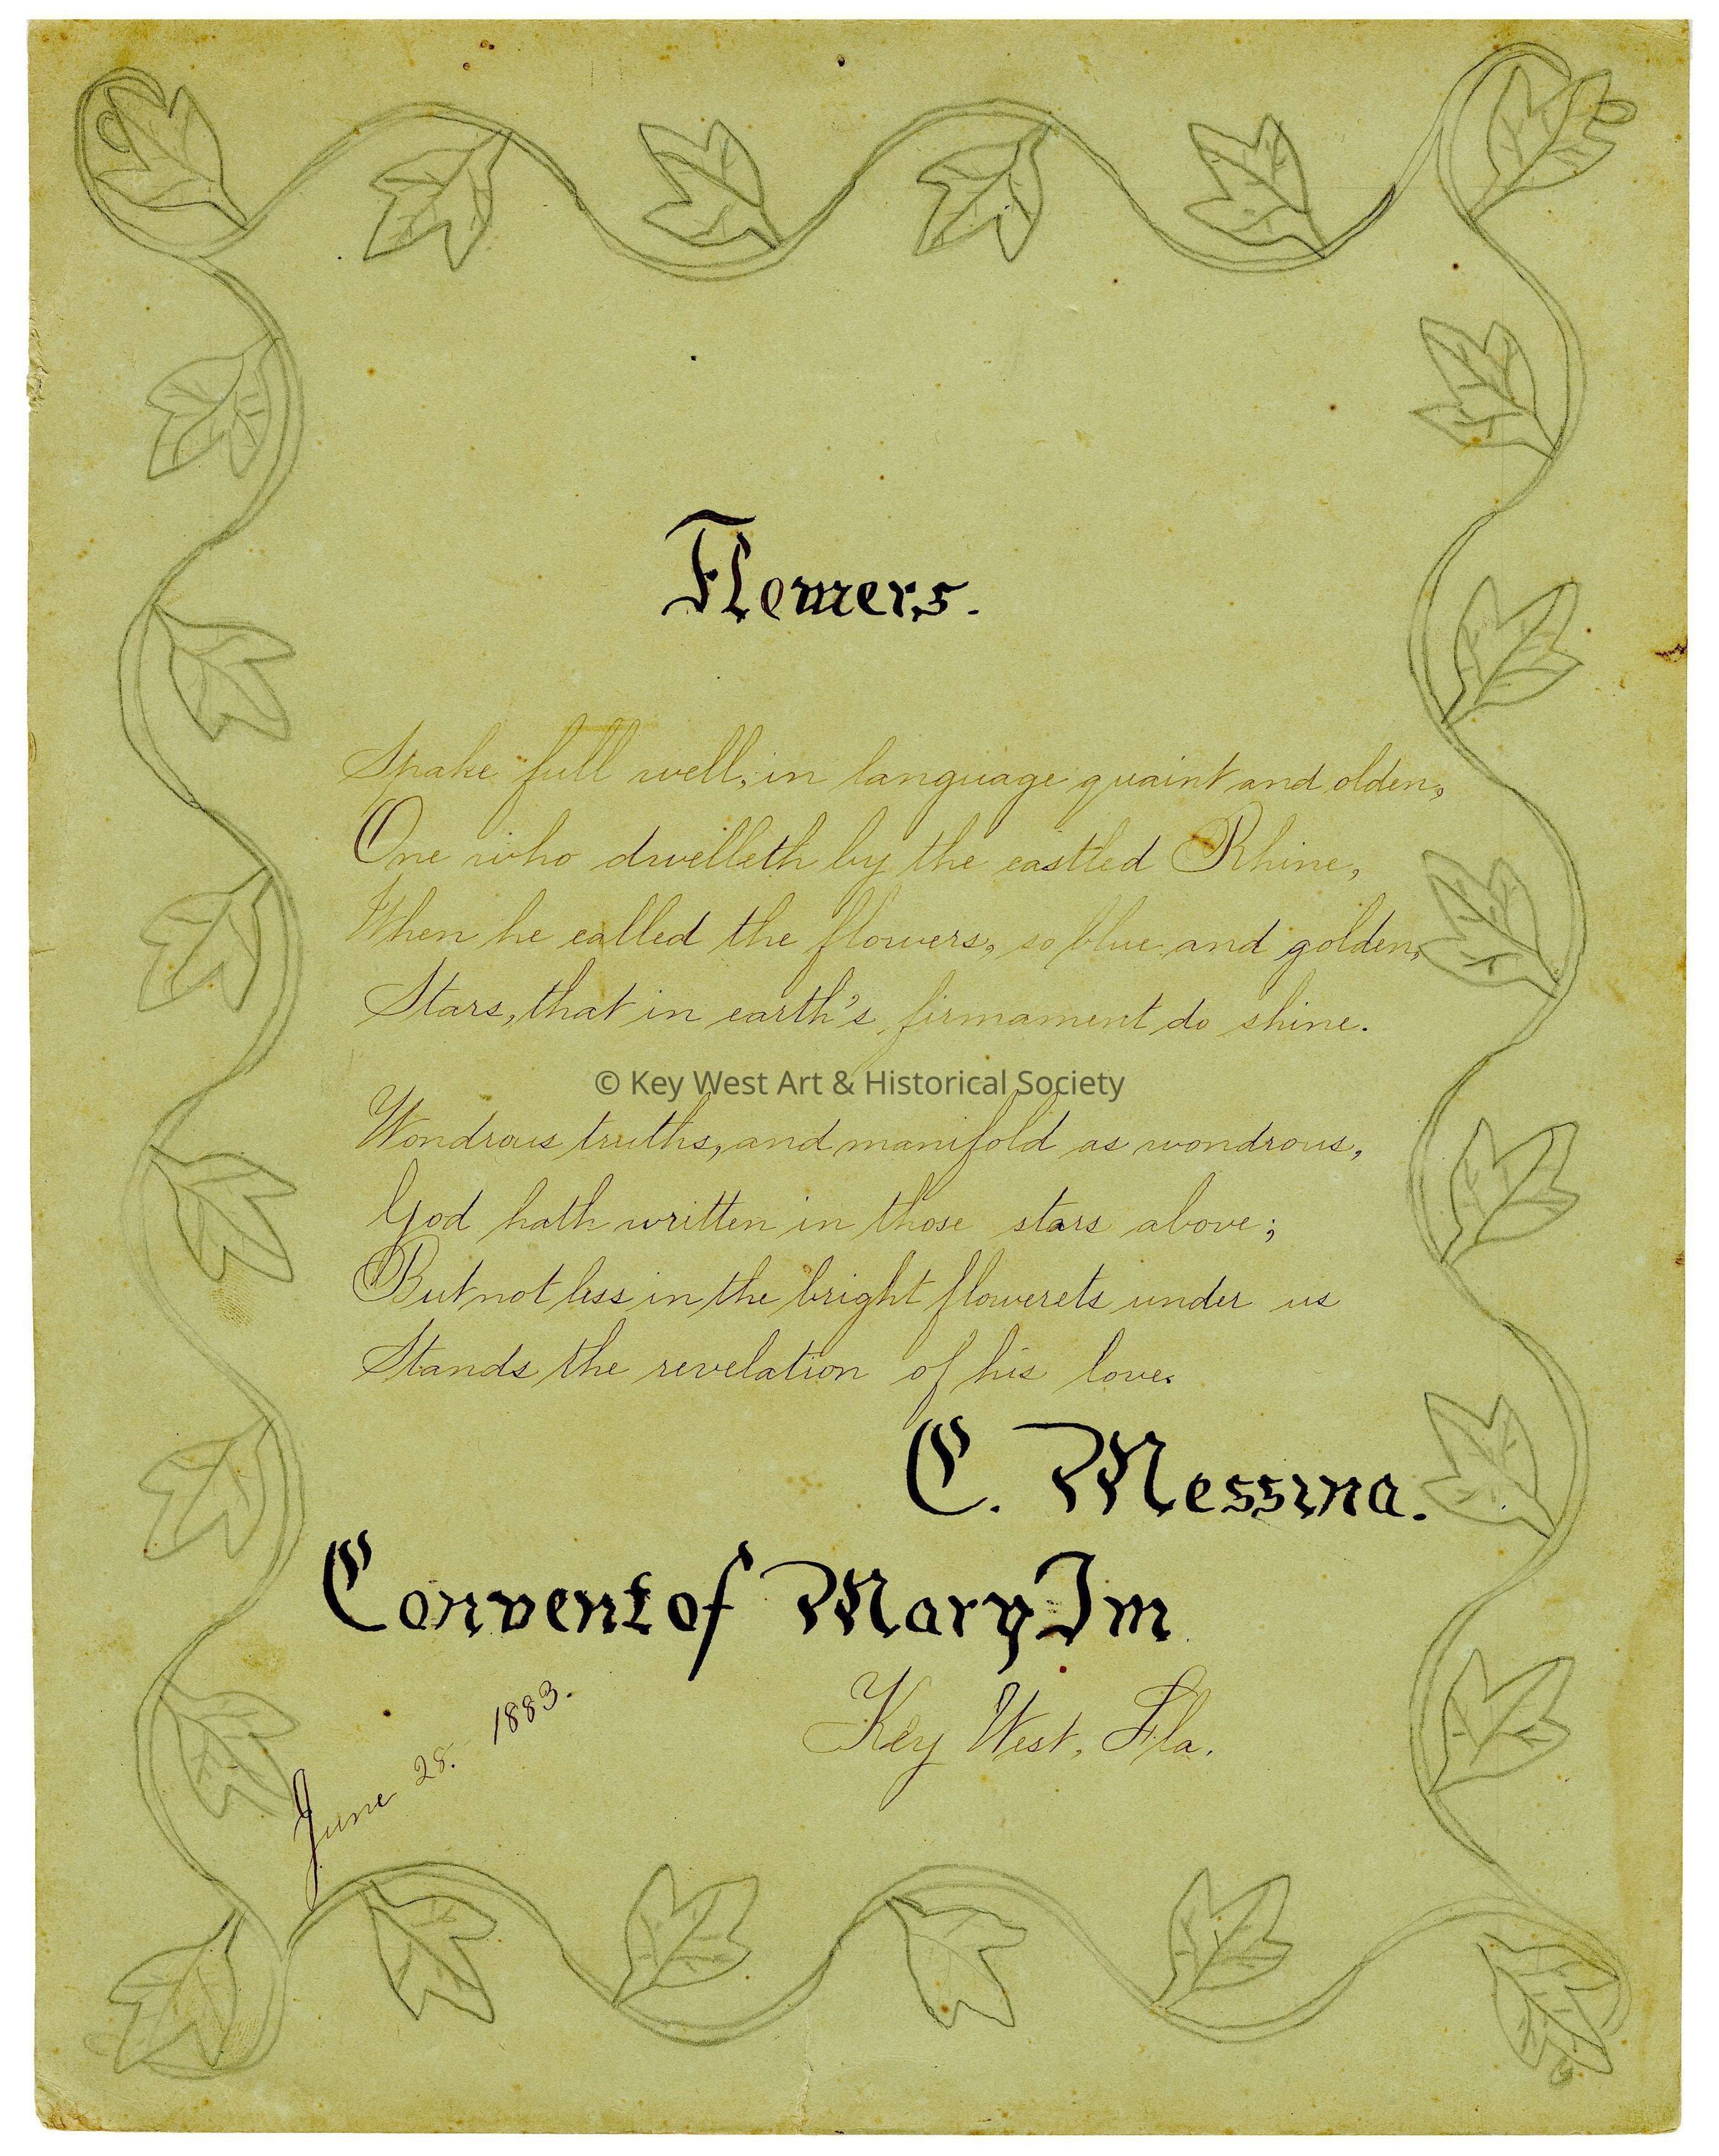 Flowers.
Spake full well, in language quaint and olden,
One who dwelleth by the castled Rhine,
When he called the flowers, so blue and golden,
Stars, that in earth's firmament do shine.
© Key West Art & Historical Society
Wondrous truths, and manifold as wondrous,
God hath written in those stars above;
But not less in the bright flowerets under us
Stands the revelation of his love.
C. Messina.
Convent of Mary Im
Key West, Fla.
June 28. 1883.